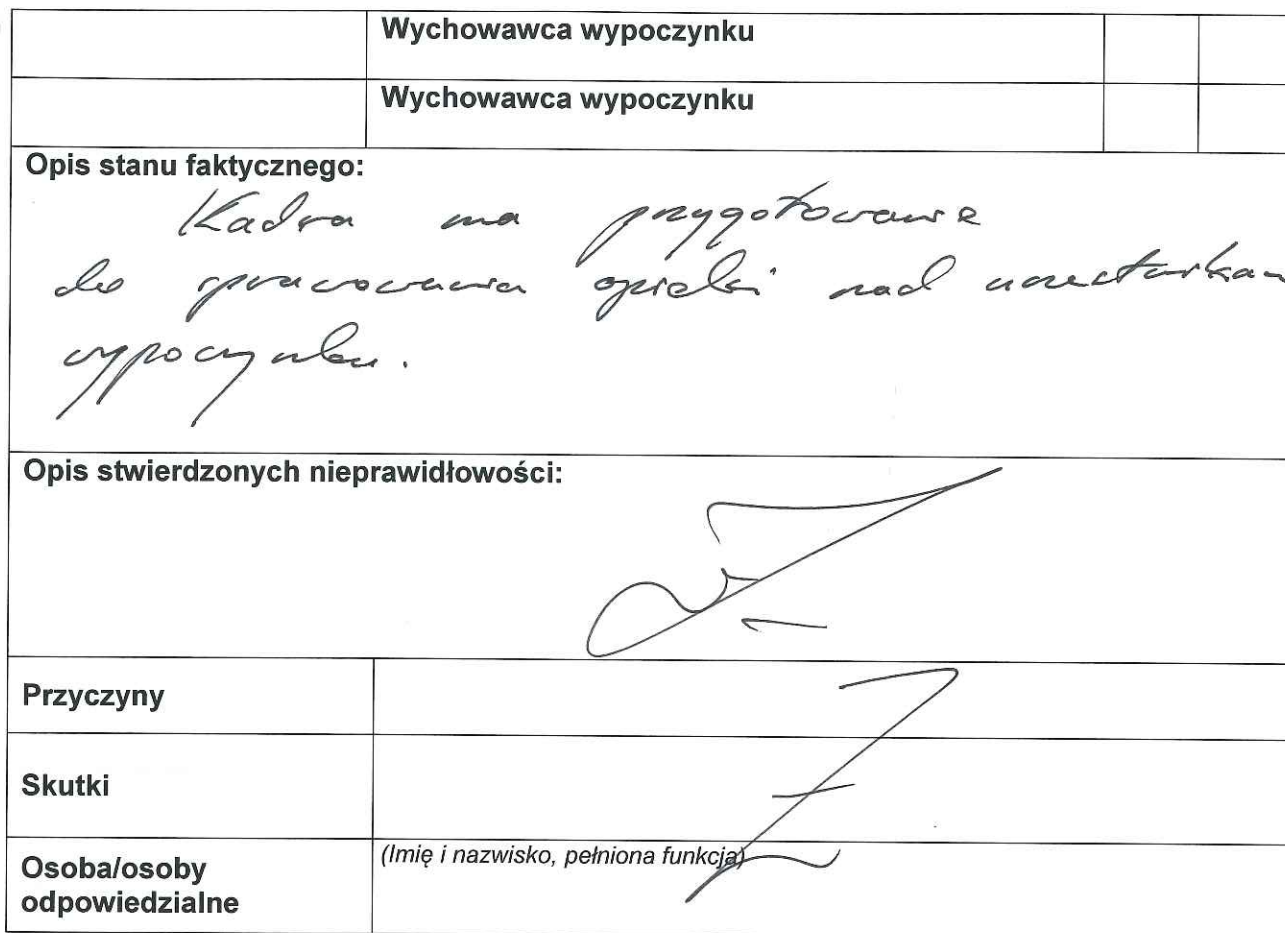 Wychowawca wypoczynku
Wychowawca wypoczynku
Opis stanu faktycznego:
Kadra ma przygotowanie
do sprawowania opieki nad uczestnikam
wypoczynku.
Opis stwierdzonych nieprawidłowości:
Przyczyny
Skutki
Osoba/osoby
odpowiedzialne
(Imię i nazwisko, pełniona funkcja)